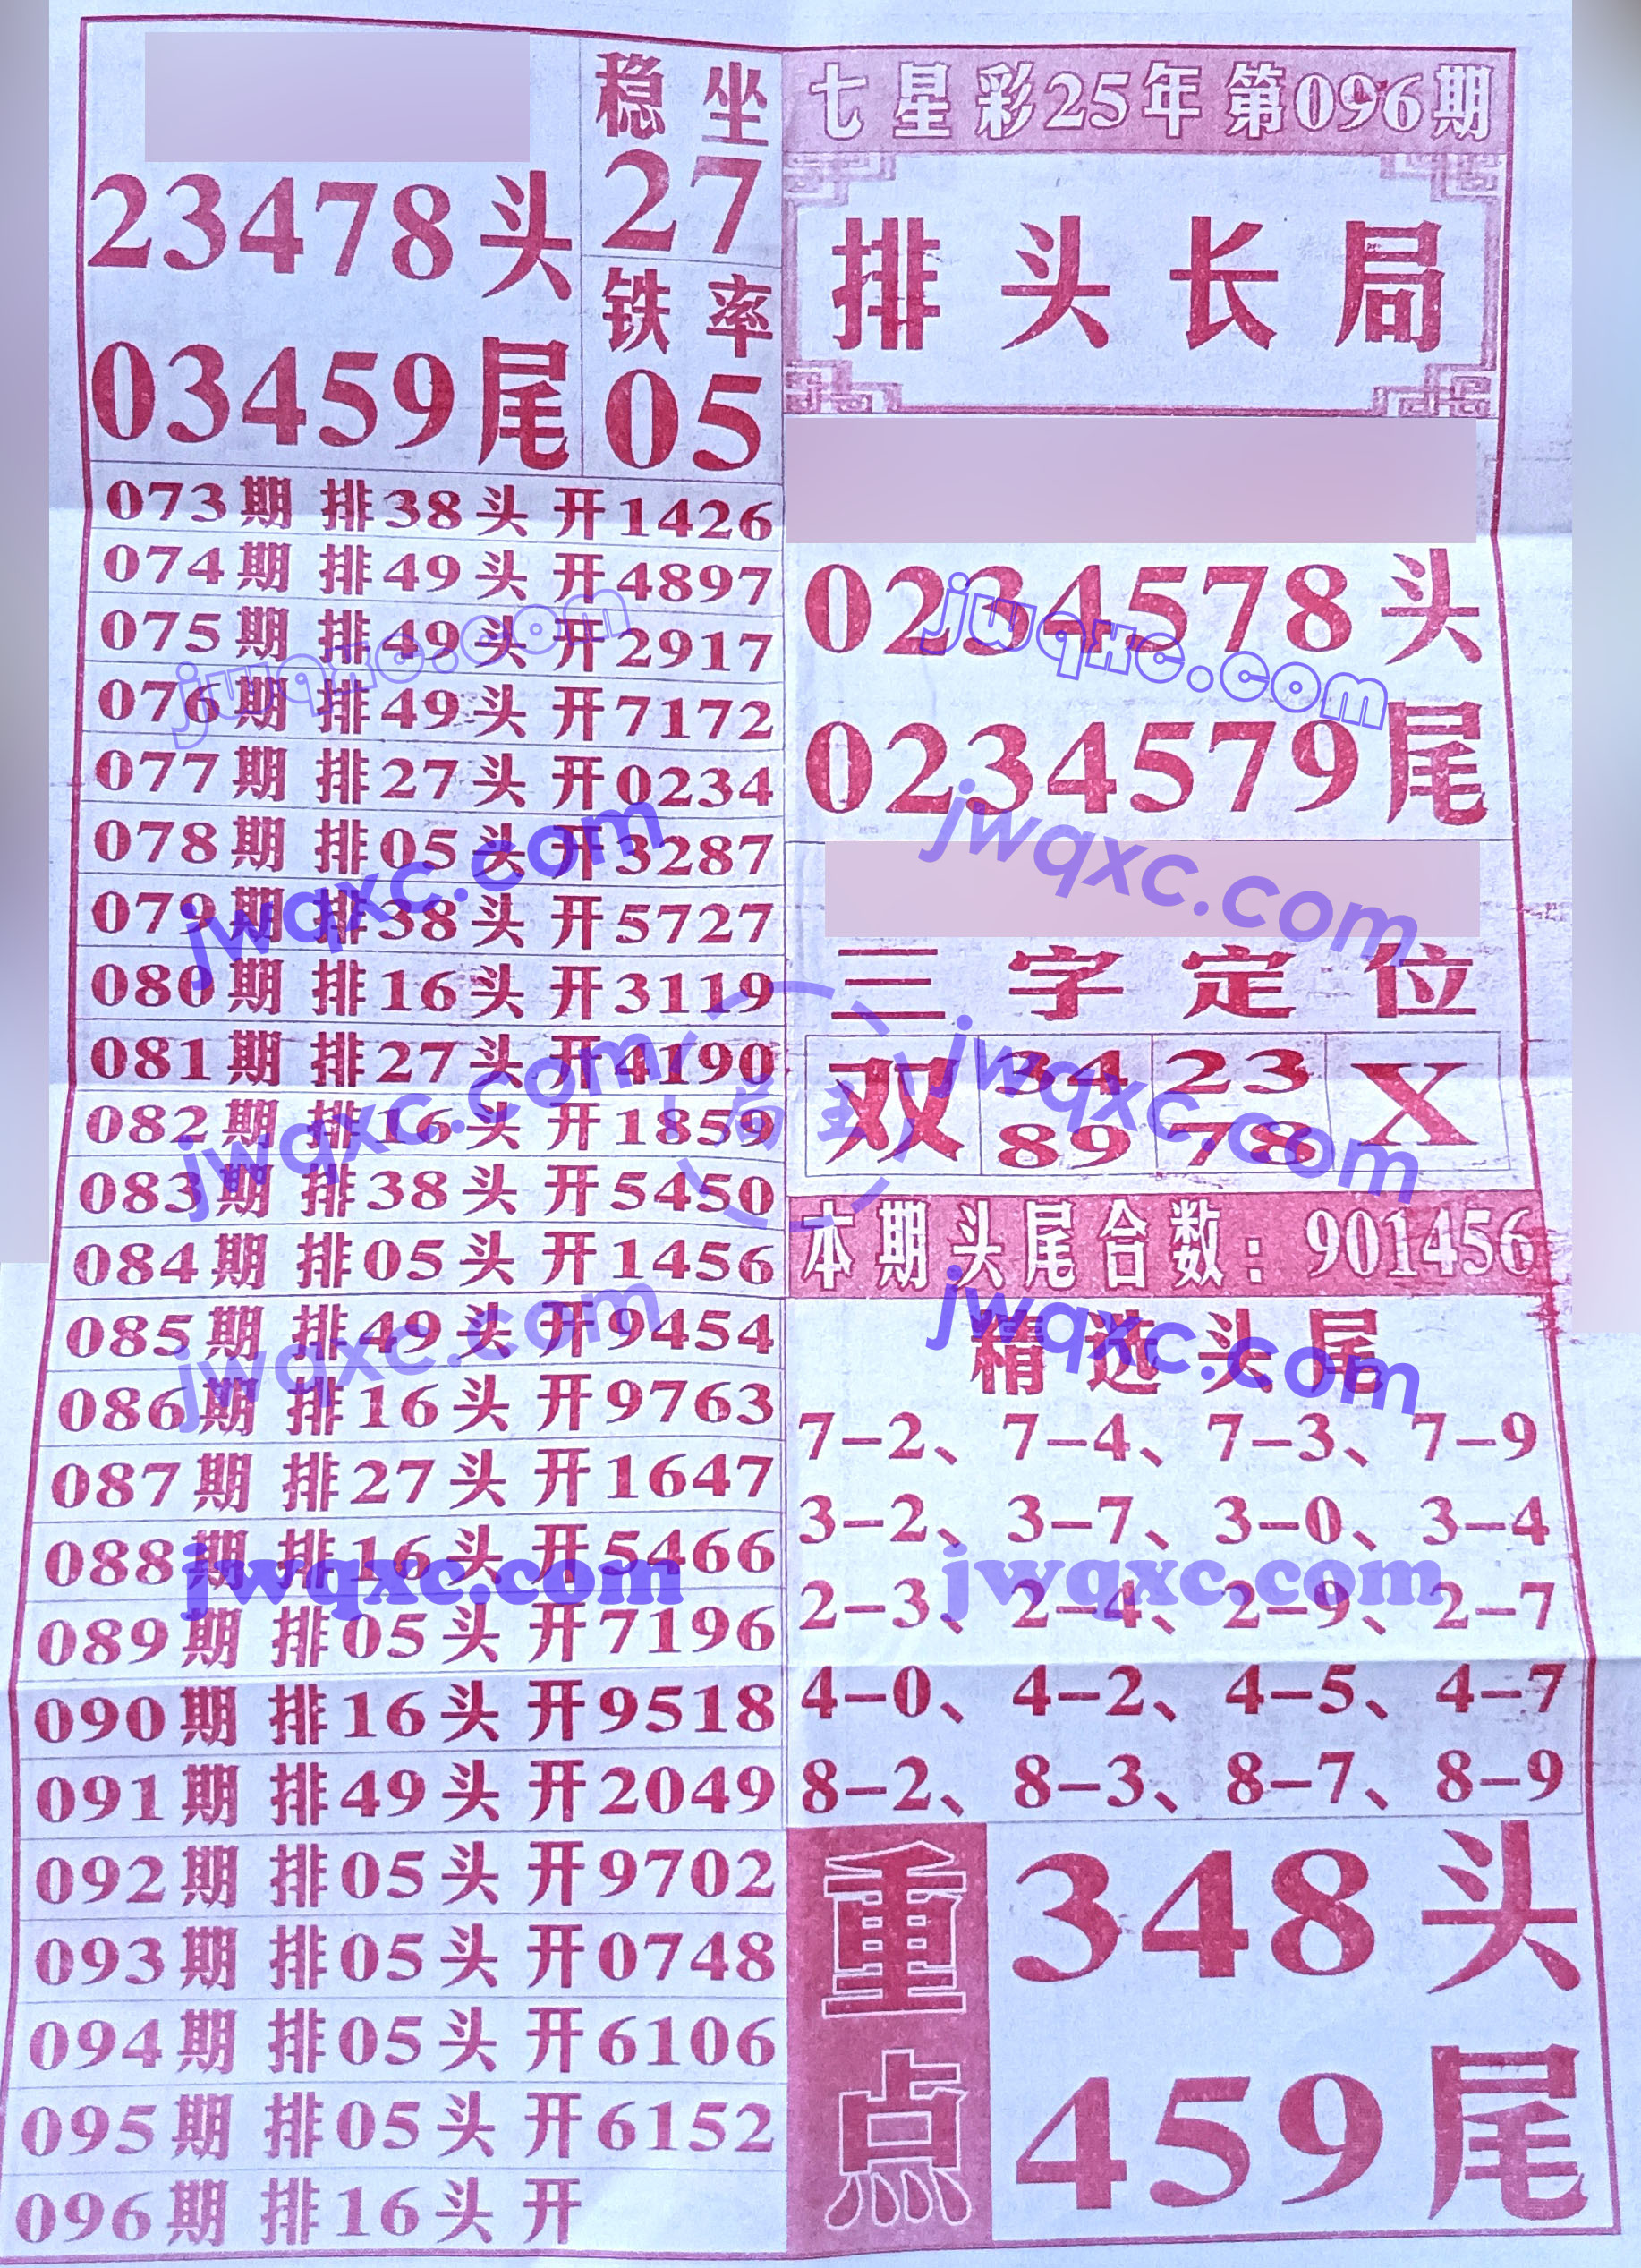 稳坐
27
23478头
铁率
03459尾
05
073期 排38头 开1426
074期 排49头 开4897
075期 排49头 开2917
076期 排49头 开7172
077期 排27头 开0234
078期 排05头 开3287
079期 排38头 开5727
080期 排16头 开3119
081期 排27头 开4190
082期 排16头 开1859
083期 排38头 开5450
084期 排05头 开1456
085期 排49头 开9454
086期 排16头 开9763
087期 排27头 开1647
088期 排16头 开5466
089期 排05头 开7196
090期 排16头 开9518
091期 排49头 开2049
092期 排05头 开9702
093期 排05头 开0748
094期 排05头 开6106
095期 排05头 开6152
096期 排16头 开
七星彩25年第096期
排头长局
0234578头
0234579尾
三字定位
双 34 23 X
89 78
本期头尾合数：901456
精选头尾
7–2、7–4、7–3、7–9
3–2、3–7、3–0、3–4
2–3、2–4、2–9、2–7
4–0、4–2、4–5、4–7
8–2、8–3、8–7、8–9
重点
348头
459尾
jwqxc.com
jwqxc.com
jwqxc.com
jwqxc.com
jwqxc.com
jwqxc.com
jwqxc.com
jwqxc.com
jwqxc.com
jwqxc.com